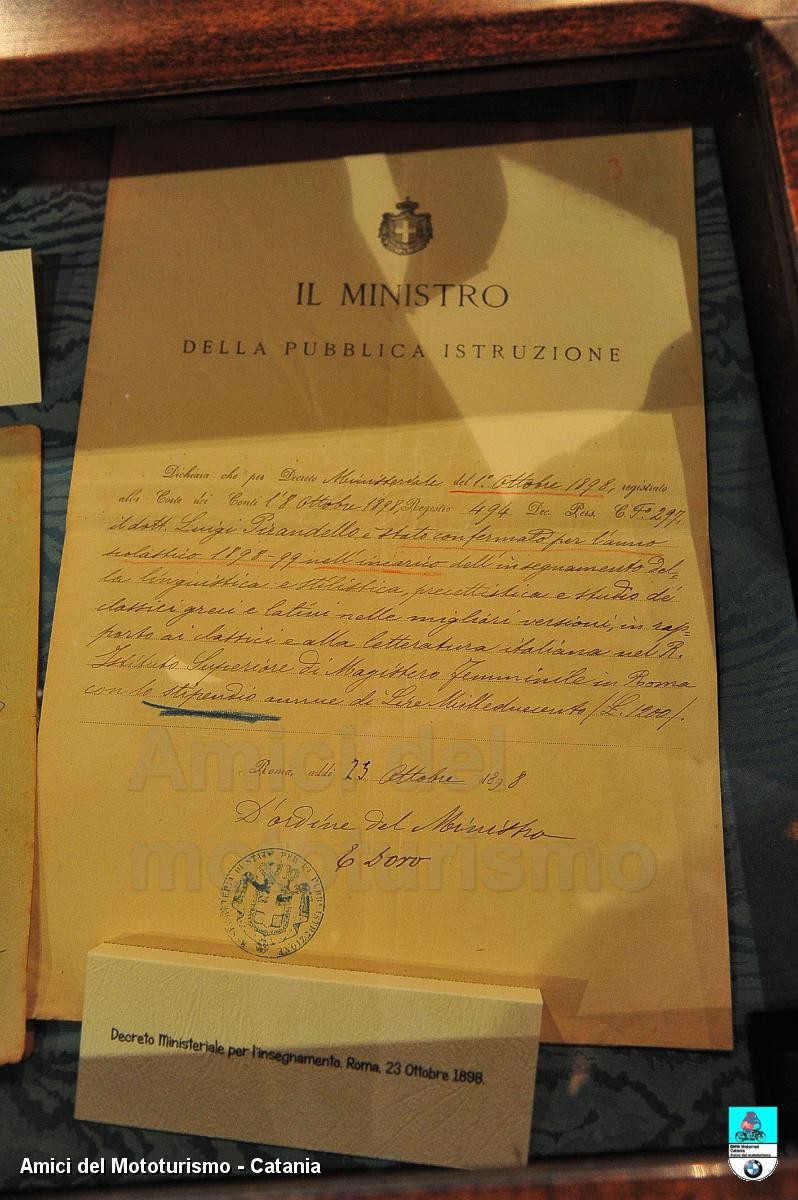 3
IL MINISTRO
DELLA PUBBLICA ISTRUZIONE
Dichiara che per Decreto Ministeriale del 1º Ottobre 1898, registrato
alla Corte dei Conti l'8 Ottobre 1898, Registro 494 Dec. Pers. C. Fº 297,
il dott. Luigi Pirandello, è stato confermato per l'anno
scolastico 1898-99 nell'incarico dell'insegnamento del-
la linguistica e stilistica, precettistica e studio dei
classici greci e latini nelle migliori versioni, in rap-
porto ai classici e alla letteratura italiana nel R.
Istituto Superiore di Magistero femminile in Roma
con lo stipendio annuo di Lire Milleduecento (L. 1200).
Roma, addì 23 Ottobre 1898
D'ordine del Ministro
Amici del
mototurismo
Decreto Ministeriale per l'insegnamento. Roma, 23 Ottobre 1898.
Amici del Mototurismo - Catania
BMW Motorrad
Catania
Amici del mototurismo